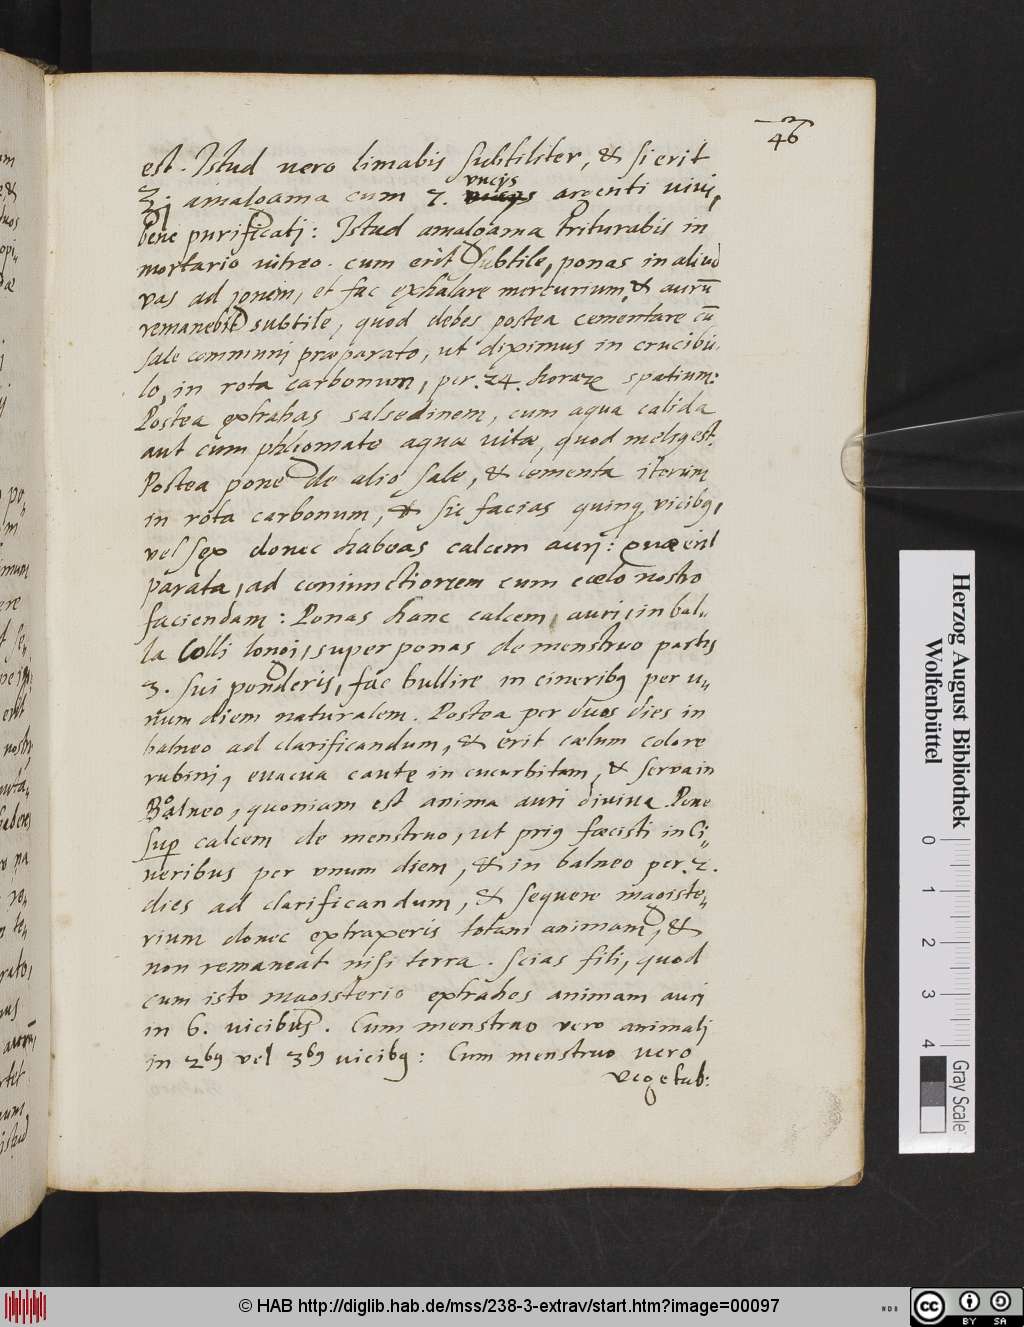 46
est. Istud vero limabis subtiliter, & si erit
℥j amalgama cum 7. uncijs argenti vivi,
bene purificatj: Istud amalgama triturabis in
mortario vitreo. cum erit subtile, ponas in aliud
vas ad ignem, et fac exhalare mercurium, & aurū
remanebit subtile, quod debes postea cementare cū
sale communj præparato, ut diximus in crucibu-
lo, in rota carbonum, per .24. horarꝝ spatium:
Postea extrahas salsedinem, cum aqua calida
aut cum phlegmate aquæ vitæ, quod meliꝰ est.
Postea pone de alio sale, & cementa iterum
in rota carbonum, & sic facias quinqꝫ vicibꝰ,
vel sex donec habeas calcem aurj: quæ erit
parata, ad coniunctionem cum cœlo nostro
faciendam: Ponas hanc calcem, auri, in bal-
la Colli longi, superponas de menstruo partes
3. sui ponderis, fac bullire in cineribꝰ per u-
num diem naturalem. Postea per duos dies in
balneo ad clarificandum, & erit cælum colore
rubinj, evacua caute in cucurbitam, & serva in
Balneo, quoniam est anima auri divina. Pone
sup calcem de menstruo, ut priꝰ fœcisti in Ci-
neribus per unum diem, & in balneo per .2.
dies ad clarificandum, & sequere magiste-
rium donec extraxeris totam animam, &
non remaneat nisi terra. Scias fili, quod
cum isto magisterio extrahes animam aurj
in 6. vicibus. Cum menstruo vero animalj
in 2bꝰ vel 3bꝰ vicibꝰ: Cum menstruo vero
vegetab:
Herzog August Bibliothek
Wolfenbüttel
0 1 2 3 4
Gray Scale
© HAB http://diglib.hab.de/mss/238-3-extrav/start.htm?image=00097
cc BY SA